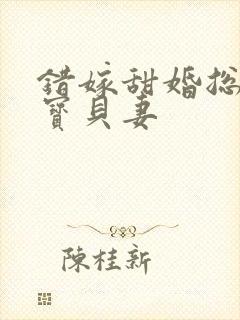 錯嫁甜婚總
寶貝妻
陳桂新